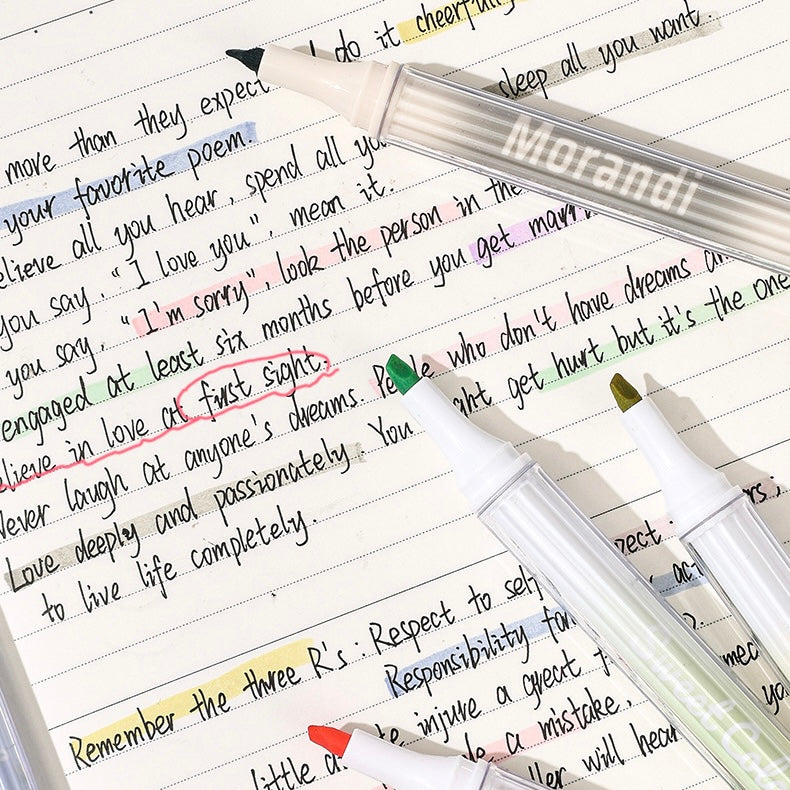 do it cheerfully
more than they expect
sleep all you want.
your favorite poem.
believe all you hear, spend all you
you say. "I love you", mean it.
you say. "I'm sorry", look the person in the
engaged at least six months before you get marri
believe in love at first sight. People who don't have dreams
Never laugh at anyone's dreams. You might get hurt but it's the one
Love deeply and passionately.
to live life completely.
Remember the three R's: Respect to self
Responsibility for
little injure a great
a mistake,
will hear
Morandi
Sweet Col